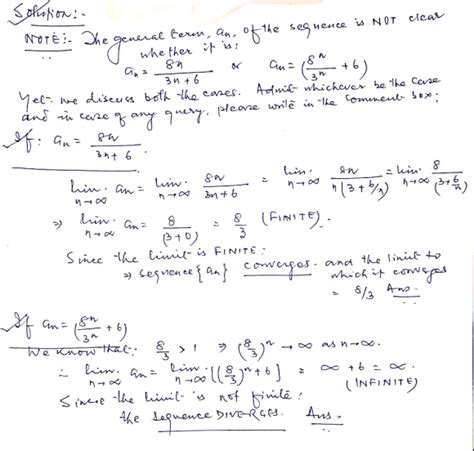 Solution:-
NOTE:- The general term, an, of the sequence is NOT clear
whether it is:
an = 8n/(3n+6) or an = (8^n/3^n + 6)
Yet we discuss both the cases. Admit whichever be the case
and in case of any query, please write in the comment box:
If: an = 8n/(3n+6).
lim n→∞ an = lim n→∞ 8n/(3n+6) = lim n→∞ 8n/(n(3+6/n)) = lim n→∞ 8/(3+6/n)
⇒ lim n→∞ an = 8/(3+0) = 8/3 (FINITE).
Since the limit is FINITE:
⇒ sequence {an} converges. and the limit to
which it converges
= 8/3 Ans.
If an = (8^n/3^n + 6)
We know that: 8/3 > 1 ⇒ (8/3)^n → ∞ as n→∞.
∴ lim n→∞ an = lim n→∞ [(8/3)^n + 6] = ∞ + 6 = ∞.
(INFINITE)
Since the limit is not finite:
the sequence DIVERGES. Ans.